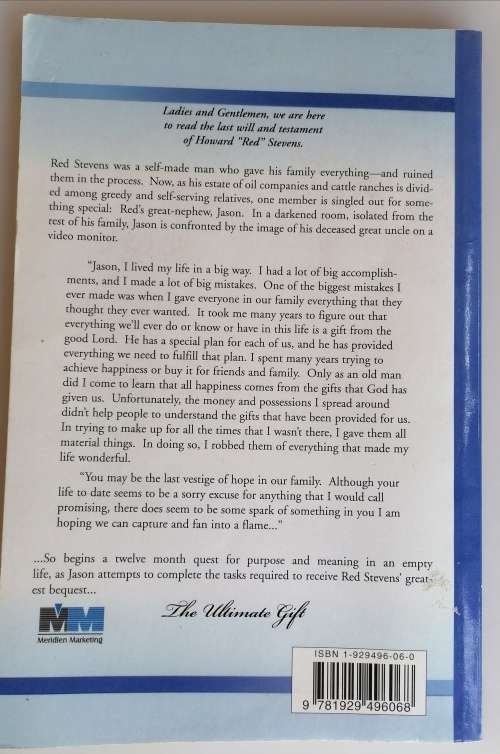 Ladies and Gentlemen, we are here
to read the last will and testament
of Howard "Red" Stevens.
Red Stevens was a self-made man who gave his family everything—and ruined
them in the process. Now, as his estate of oil companies and cattle ranches is divid-
ed among greedy and self-serving relatives, one member is singled out for some-
thing special: Red's great-nephew, Jason. In a darkened room, isolated from the
rest of his family, Jason is confronted by the image of his deceased great uncle on a
video monitor.
"Jason, I lived my life in a big way. I had a lot of big accomplish-
ments, and I made a lot of big mistakes. One of the biggest mistakes I
ever made was when I gave everyone in our family everything that they
thought they ever wanted. It took me many years to figure out that
everything we'll ever do or know or have in this life is a gift from the
good Lord. He has a special plan for each of us, and he has provided
everything we need to fulfill that plan. I spent many years trying to
achieve happiness or buy it for friends and family. Only as an old man
did I come to learn that all happiness comes from the gifts that God has
given us. Unfortunately, the money and possessions I spread around
didn't help people to understand the gifts that have been provided for us.
In trying to make up for all the times that I wasn't there, I gave them all
material things. In doing so, I robbed them of everything that made my
life wonderful.
"You may be the last vestige of hope in our family. Although your
life to date seems to be a sorry excuse for anything that I would call
promising, there does seem to be some spark of something in you I am
hoping we can capture and fan into a flame..."
...So begins a twelve month quest for purpose and meaning in an empty
life, as Jason attempts to complete the tasks required to receive Red Stevens' great-
est bequest...
The Ultimate Gift
MM
Meridien Marketing
ISBN 1-929496-06-0
9 781929 496068